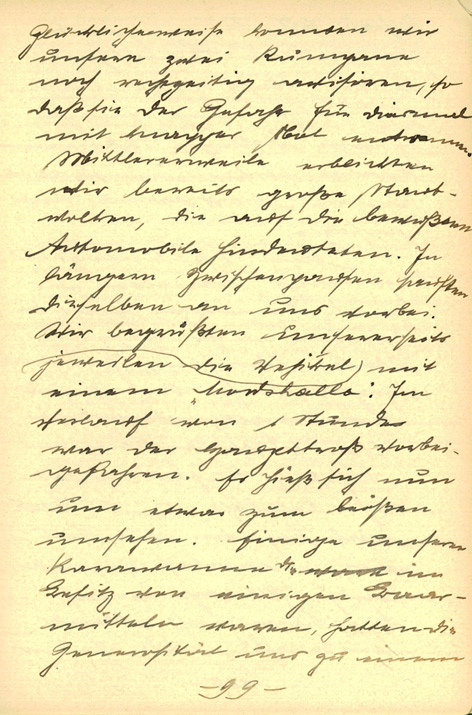 Glücklicherweise konnten wir
unsere zwei Kumpane
noch rechtzeitig avisieren, so
daß sie der Gefahr für diesmal
mit knapper Not entrannen.
Mittlererweile erblickten
wir bereits große Staub-
wolken, die auf die bewußten
Automobile hindeuteten. In
längern Zwischenpausen sausten
dieselben an uns vorbei.
Wir begrüßten unsererseits
jeweilen die Vehikel mit
einem "Mordshallo". Im
Verlauf von 1 Stunde
war der Haupttroß vorbei-
gefahren. Es hieß sich nun
um etwas zum beißen
umsehen. Einige unserer
Karawanne die im
Besitz von einigen Baar-
mitteln waren, hatten die
Generosität uns zu einem
-99-